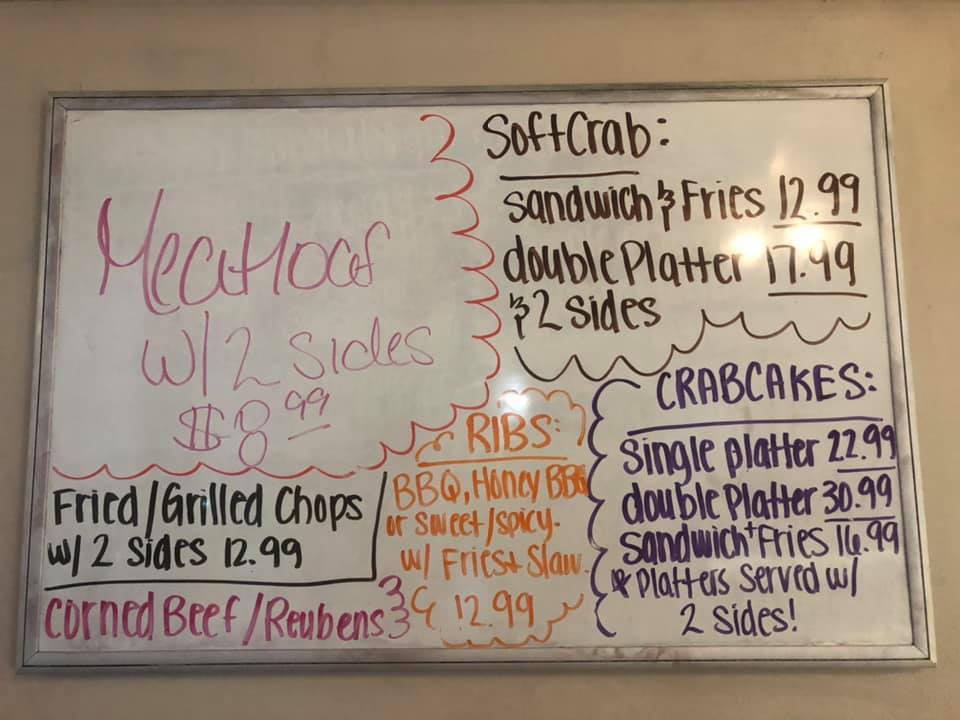 Meatloaf
w/ 2 sides
$8.99
Soft Crab:
sandwich & Fries 12.99
double Platter 17.99
& 2 sides
CRABCAKES:
Single platter 22.99
double Platter 30.99
Sandwich + Fries 16.99
* Platters Served w/
2 Sides!
RIBS:
BBQ, Honey BBQ
or sweet/spicy.
w/ Fries + Slaw
12.99
Fried/Grilled Chops
w/ 2 sides 12.99
Corned Beef/Reubens